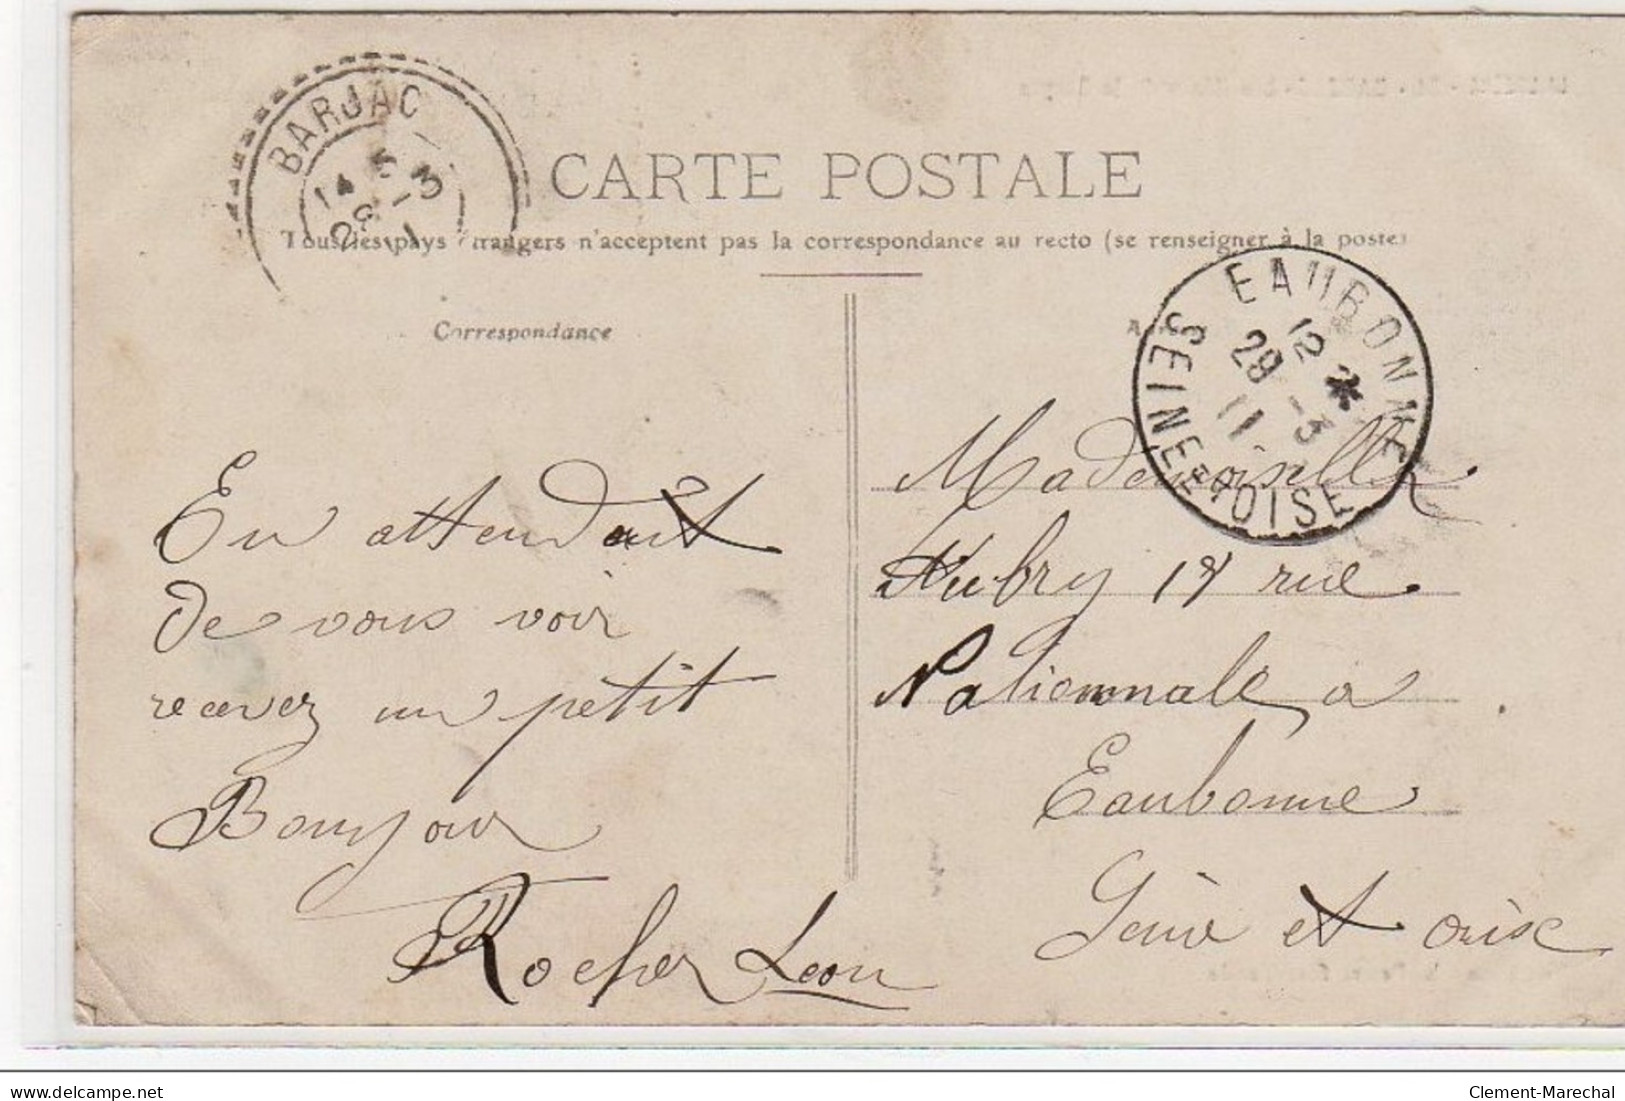 BARJAC
14 5
28 -3
CARTE POSTALE
Tous les pays étrangers n'acceptent pas la correspondance au recto (se renseigner à la poste)
Correspondance
EAUBONNE
12 *
29 -3
11
SEINE-&-OISE
En attendant
de vous voir
recevez un petit
Bonjour
Rocher Leon
Mademoiselle
Aubry 18 rue
Nationnale a
Eaubonne
Seine et oise
delcampe.net
Clement-Marechal